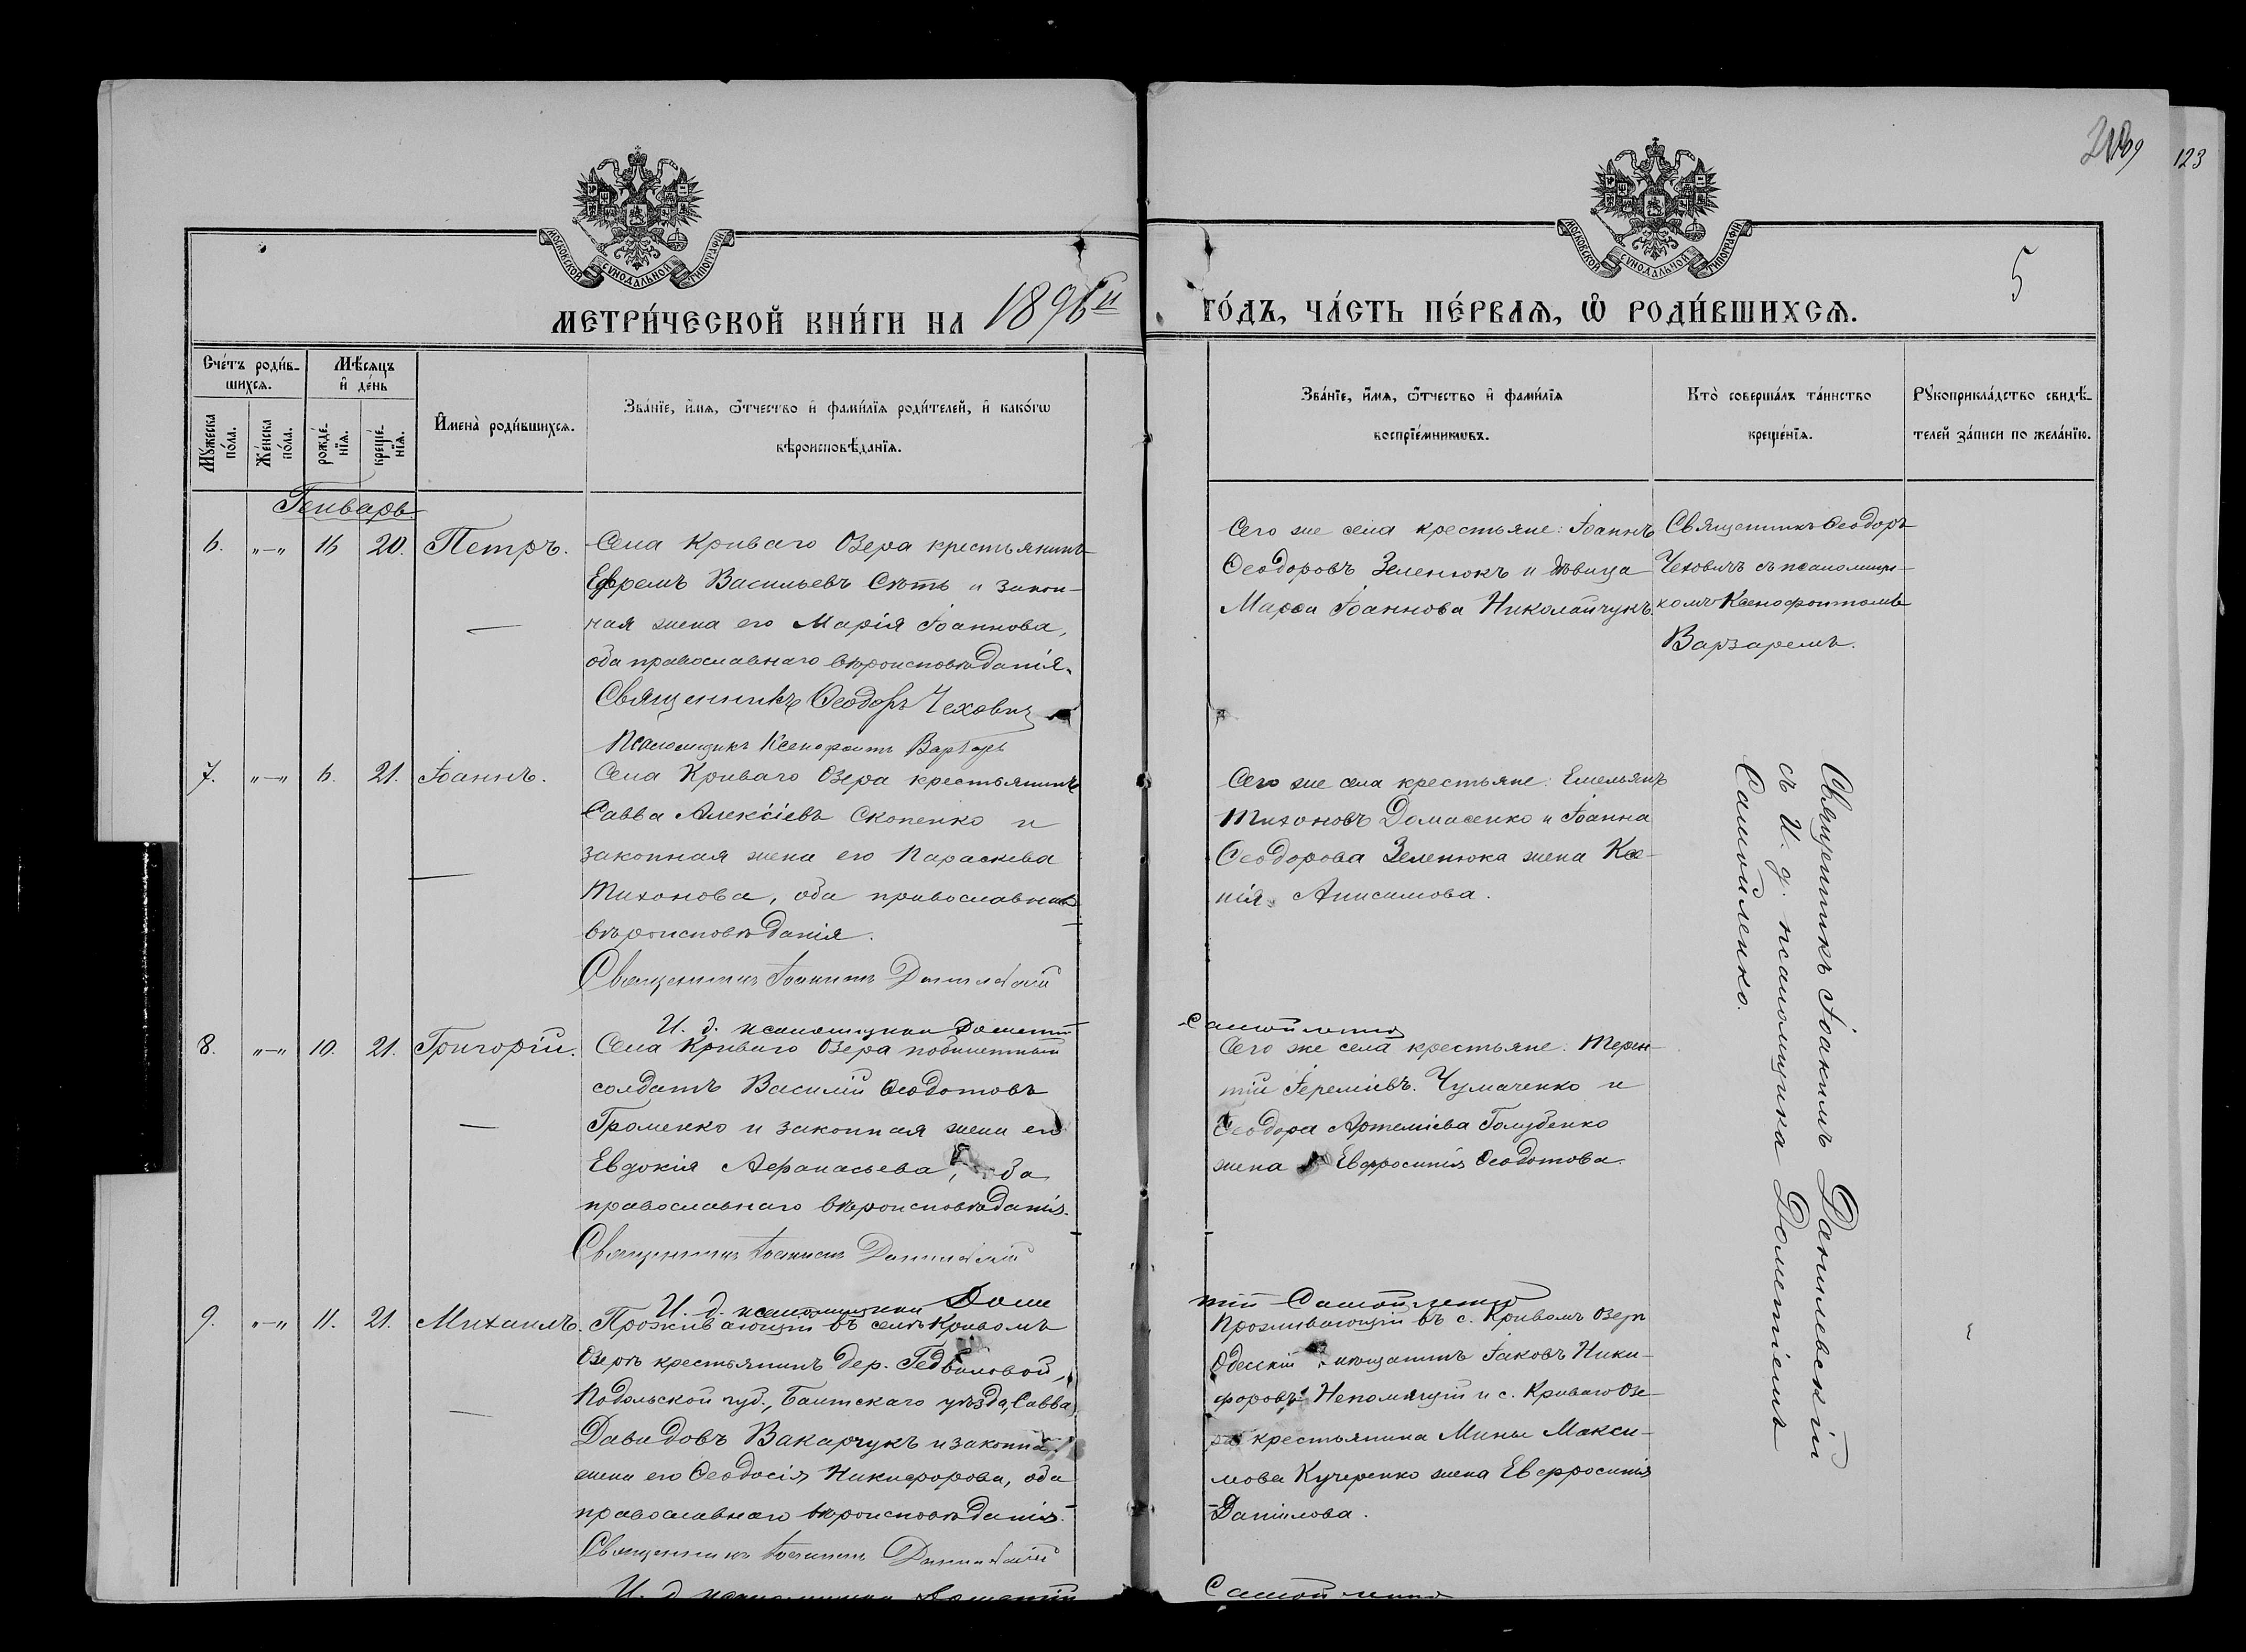 209
123
5
МОСКОВСКОЙ СѴНОДАЛЬНОЙ ТИПОГРАФІИ
МОСКОВСКОЙ СѴНОДАЛЬНОЙ ТИПОГРАФІИ
МЕТРИ́ЧЕСКОЙ КНИ́ГИ НА 1896й
ГО́ДЪ, ЧА́СТЬ ПЕ́РВАѦ, Ѡ РОДИ́ВШИХСѦ.
Сче́тъ роди́в-
шихсѧ.
Мѣ́сѧцъ
и де́нь
Мꙋ́жеска по́ла.
Же́нска по́ла.
рожде́-нїѧ.
креще́-нїѧ.
Имена̀ роди́вшихсѧ.
Зва́нїе, и́мѧ, ѻ́тчество и фами́лїѧ роди́телей, и како́гѡ
вѣроисповѣ́данїѧ.
Зва́нїе, и́мѧ, ѻ́тчество и фами́лїѧ
воспрїе́мникѡвъ.
Кто̀ соверша́лъ та́инство
креще́нїѧ.
Рꙋкоприкла́дство свидѣ́-
телей за́писи по жела́нїю.
Генварь
6. „—„ 16 20. Петръ.
Села Криваго Озера крестьянинъ
Ефремъ Васильевъ Сѣть и закон-
ная жена его Марія Іоаннова,
оба православнаго вѣроисповѣданія.
Священникъ Ѳеодоръ Чехович
Псаломщикъ Ксенофонтъ Варзарь
Сего же села крестьяне: Іоаннъ
Ѳеодоровъ Зеленюкъ и дѣвица
Марѳа Іоаннова Николайчукъ.
Священникъ Ѳеодоръ
Чеховичъ съ псаломщи-
комъ Ксенофонтомъ
Варзаремъ.
7. „—„ 6. 21. Іоаннъ.
Села Криваго Озера крестьянинъ
Савва Алексіевъ Скопенко и
законная жена его Параскева
Тихонова, оба православнаго
вѣроисповѣданія.
Священникъ Іоакимъ Данилевскій
И. д. псаломщика Дометій
Самойленко
Сего же села крестьяне: Емельянъ
Тихоновъ Домасенко и Іоанна
Ѳеодорова Зеленюка жена Ксе-
нія Анисимова.
Священникъ Іоакимъ Данилевскій
съ И. д. псаломщика Дометіемъ
Самойленко.
8. „—„ 10. 21. Григорій.
Села Криваго Озера побилетный
солдатъ Василій Ѳеодотовъ
Громенко и законная жена его
Евдокія Аѳанасьева, оба
православнаго вѣроисповѣданія.
Священникъ Іоакимъ Данилевскій
И. д. псаломщика Доме
тій Самойленко
Сего же села крестьяне: Терен-
тій Іереміевъ Чумаченко и
Ѳеодора Артеміева Голубенко
жена Евфросинія Ѳеодотова.
9. „—„ 11. 21. Михаилъ.
Проживающій въ селѣ Кривомъ
Озерѣ крестьянинъ дер. Гедвиловой,
Подольской губ., Балтскаго уѣзда, Савва
Давидовъ Вакарчукъ и законна
жена его Ѳеодосія Никифорова, оба
православнаго вѣроисповѣданія.
Священникъ Іоакимъ Данилевскій
И. д. псаломщика Дометій
Самойленко
Проживающій въ с. Кривомъ Озерѣ
Одесскій мѣщанинъ Іаковъ Ники-
форовъ Непомнящій и с. Криваго Озе-
ра крестьянина Мины Макси-
мова Кучеренко жена Евфросинія
Данилова.